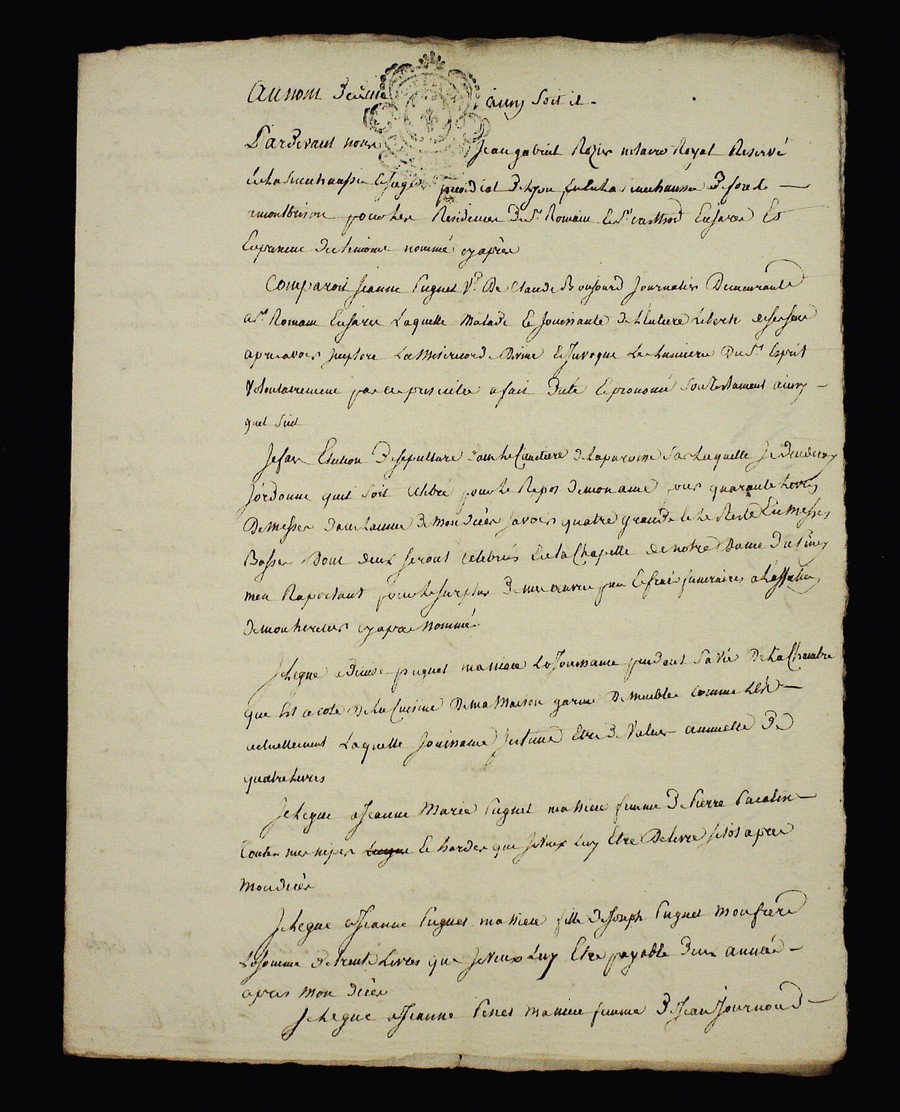 Au nom de Dieu ainsy soit il
Pardevant nous Jean gabriel Rozier notaire Royal Reservé
de la senechaussée et siege presidial de Lyon et de la senechaussée de forest
montbrison pour les Residences de St Romain et St carthod En jarez Et
En presence des temoins nommé cy après
Comparoit Jeanne Puguet Ve De Claude Bonjourd Journalier Demeurante
a St Romain En jarez Laquelle Malade et Jouissante de L'Entiere Liberté de ses sens
apres avoir Implore La Misericorde Divine et Invoque Les Lumiere Du St Esprit
Volontairement par ces presentes a fait Dicté Et prononcé son testament ainsy
quil suit
Je fais Election De sepulture dans le Cimetiere de La paroisse sur Laquelle Je decederay
J'ordonne quil soit celebré pour le Repos de mon ame pour quarante Livres
De messes dans L'année De mon Decès savoir quatre grandes et le Reste En Messes
Basses Dont deux seront celebrées En la Chapelle de notre Dame
men Raportant pour le surplus De mes œuvres pies et frais funeraires a
de mon heritier cy apres Nommé
Je Legue a puguet ma niece La Jouissance pendant sa vie De la Chambre
que Est a coté De la Cuisine De ma Maison garnie De meubles comme Elle L'est
actuellement Laquelle Jouissance J'estime Etre De Valeur annuelle De
quatre Livres
Je Legue a Jeanne Marie Puguet ma niece femme De Pierre Pacalin
toutes mes nipes et hardes que Je Veux Luy Etre Delivré sitot apres
mon Decès
Je Legue a Jeanne Puguet ma niece fille de Joseph Puguet mon frere
La somme De trente Livres que Je Veux Luy Etre payable Deux année
apres mon Decès
Je Legue a Jeanne ma niece femme De Jean Journoud